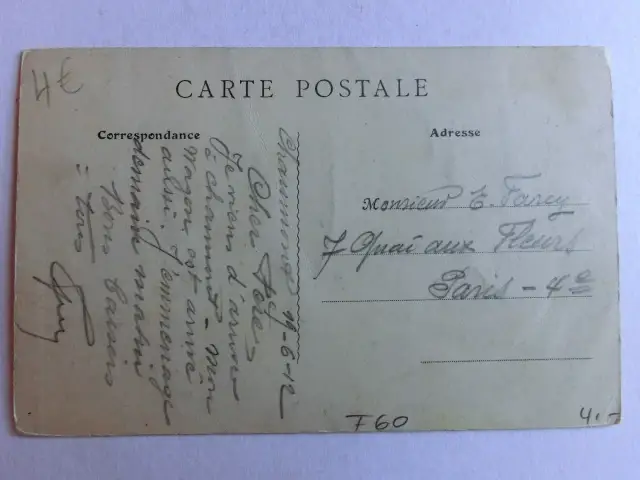 4€
CARTE POSTALE
Correspondance
Adresse
Chaumont 19-6-12
Cher Père
Je viens d'arriver
à chaumont - mon
wagon est arrivé
aussi. J'emménage
demain matin
Bons baisers
à tous
Monsieur E. Farey
7 Quai aux Fleurs
Paris - 4e
F60
4.-